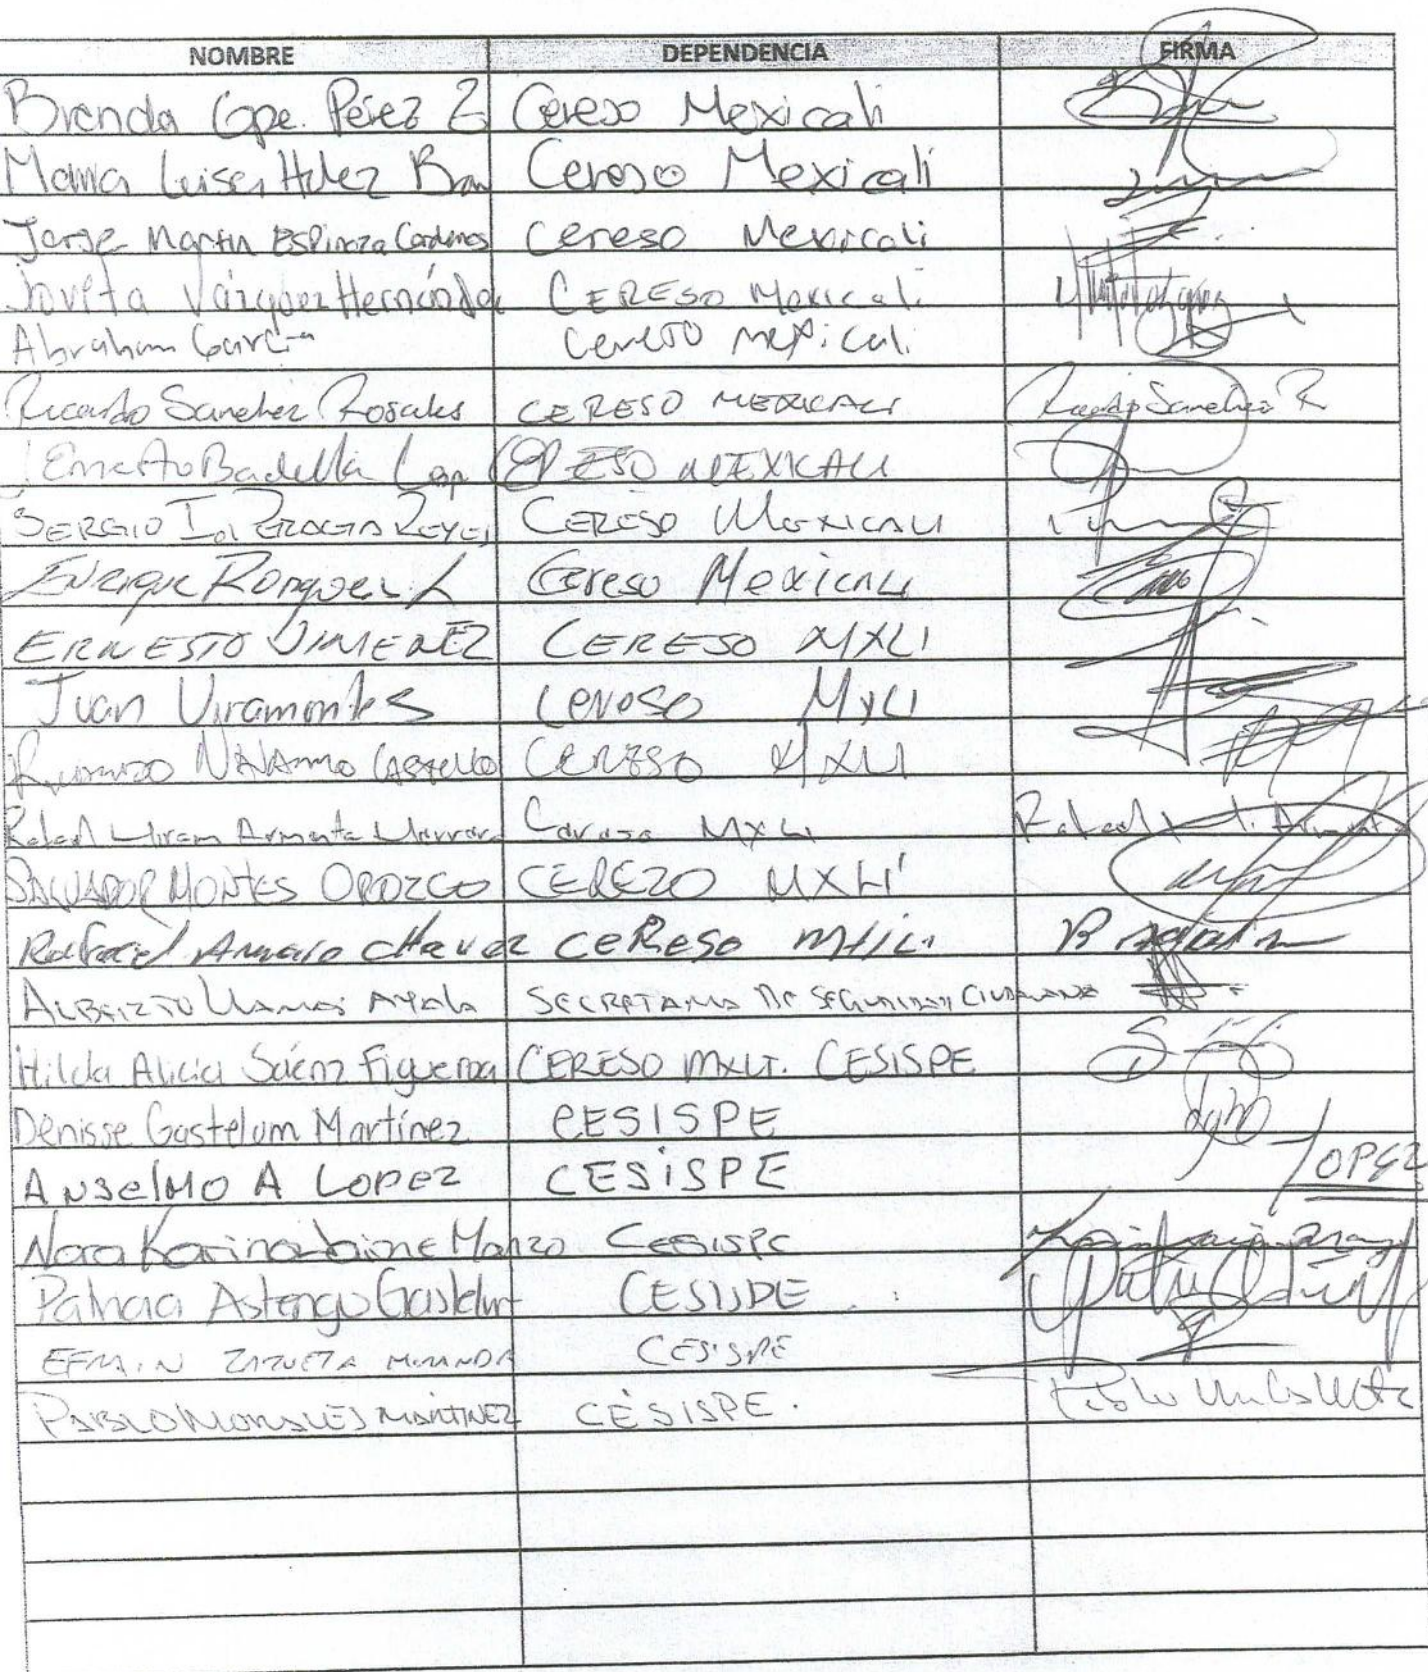 NOMBRE DEPENDENCIA FIRMA
Brenda Gpe. Pérez Z Cereso Mexicali
Maria Luisa Hdez Cereso Mexicali
Jorge Martin Espinoza Cardenas Cereso Mexicali
Jovita Vázquez Hernández CERESO Mexicali
Abraham García Cereso Mexicali
Ricardo Sanchez Rosales CERESO MEXICALI Ricardo Sanchez R
Ernesto Badilla CERESO MEXICALI
SERGIO REYES CERESO MEXICALI
Enrique L Cereso Mexicali
ERNESTO JIMENEZ CERESO MXLI
Juan Viramontes Cereso MXLI
NAVARRO CASTELLO CERESO MXLI
Rafael Hiram Armenta Herrera Cereso MXLI Rafael H. Armenta
SALVADOR MONTES OROZCO CEREZO MXLI
Rafael Chavez CERESO
ALBERTO AYALA SECRETARIA DE SEGURIDAD CIUDADANA
Hilda Alicia Sáenz Figueroa CERESO MXLI. CESISPE
Denisse Gastelum Martínez CESISPE
ANSELMO A LOPEZ CESISPE LOPEZ
Nora Karina Jaime Manzo CESISPE
Patricia Astengo Gastelum CESISPE
EFRAIN ZAZUETA MIRANDA CESISPE
PABLO MORALES MARTINEZ CESISPE.